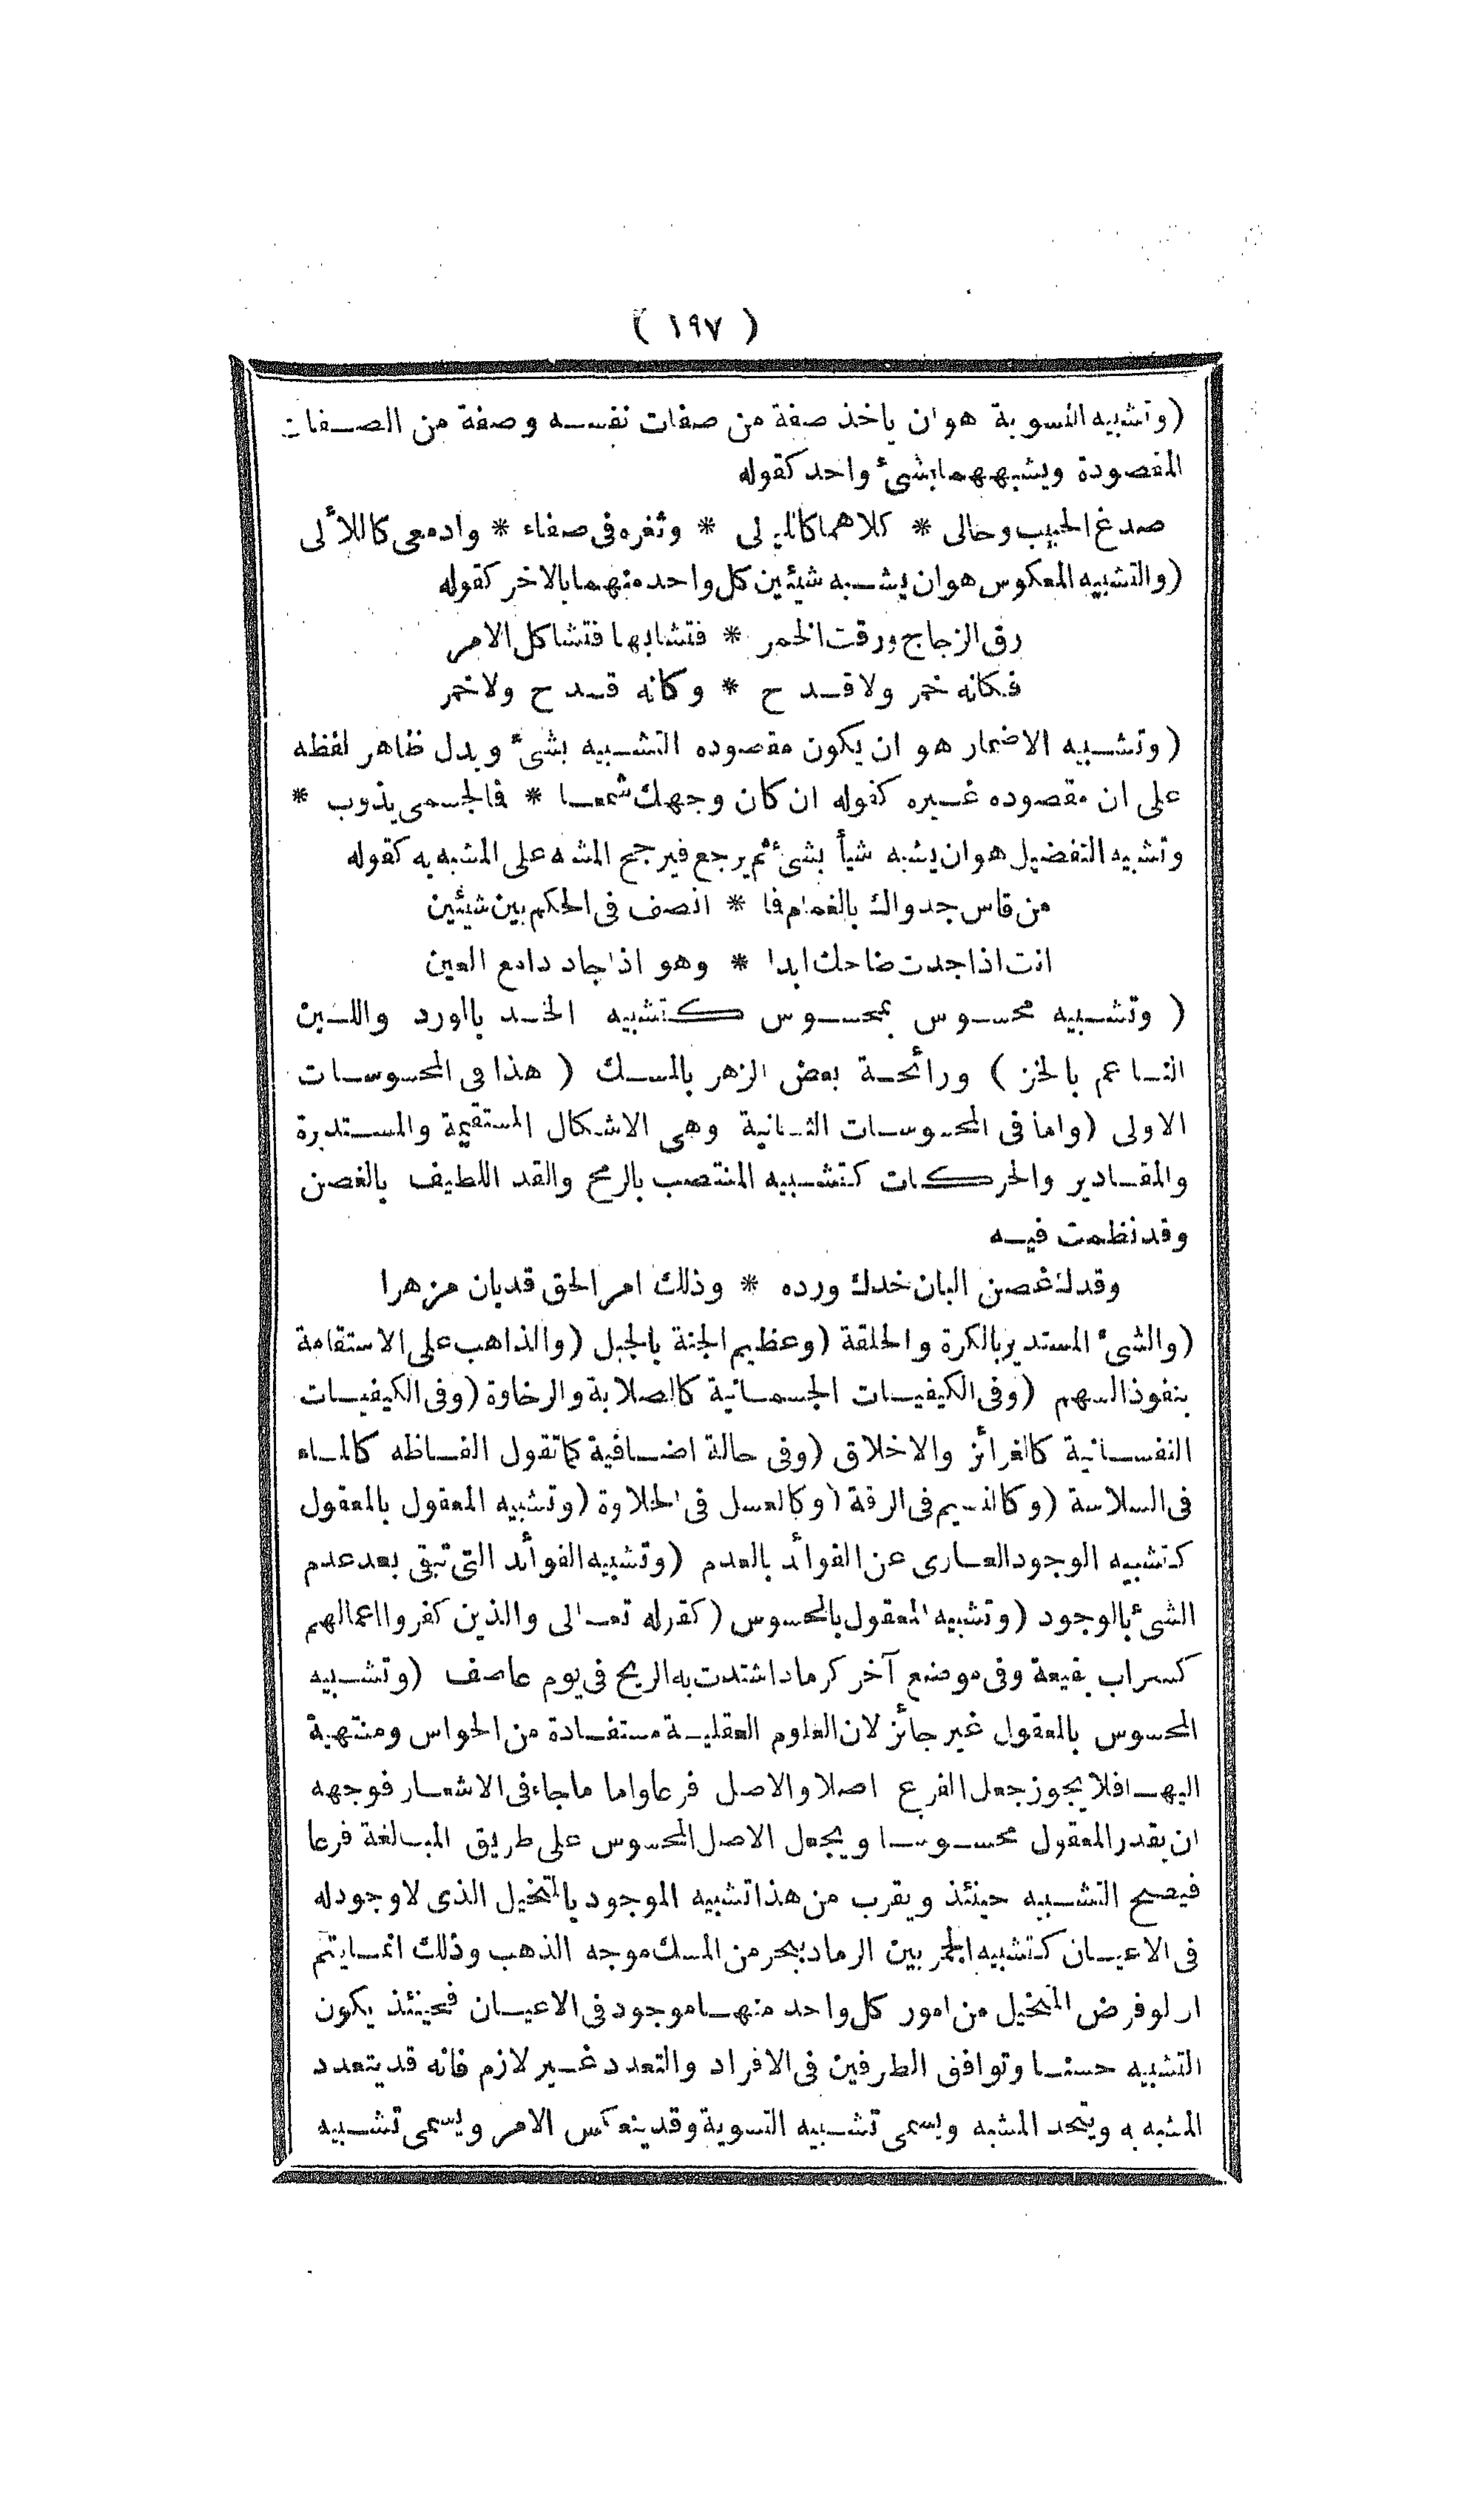 ( ١٩٧ )
(وتشبيه التسوية هو ان ياخذ صفة من صفات نفسه وصفة من الصفات
المقصودة ويشبههما بشئ واحد كقوله
صدغ الحبيب وحالى * كلاهما كالليالى * وثغره فى صفاء * وادمعى كاللألى
(والتشبيه المعكوس هو ان يشبه شيئين كل واحد منهما بالاخر كقوله
رق الزجاج ورقت الخمر * فتشابها فتشاكل الامر
فكانه خمر ولا قدح * وكانه قدح ولا خمر
(وتشبيه الاضمار هو ان يكون مقصوده التشبيه بشئ ويدل ظاهر لفظه
على ان مقصوده غيره كقوله ان كان وجهك شمعا * فالجسمى يذوب *
وتشبيه التفضيل هو ان يشبه شيأ بشئ ثم يرجع فيرجح المشبه على المشبه به كقوله
من قاس جدواك بالغمام فا * انصف فى الحكم بين شيئين
انت اذا جدت ضاحك ابدا * وهو اذا جاد دامع العين
( وتشبيه محسوس بمحسوس كتشبيه الخد بالورد واللين
الناعم بالخز ) ورائحة بعض الزهر بالمسك ( هذا فى المحسوسات
الاولى (واما فى المحسوسات الثانية وهى الاشكال المستقيمة والمستديرة
والمقادير والحركات كتشبيه المنتصب بالرمح والقد اللطيف بالغصن
وقد نظمت فيه
وقدك غصن البان خدك ورده * وذلك امر الحق قد بان مزهرا
(والشئ المستدير بالكرة والحلقة (وعظيم الجثة بالجبل (والذاهب على الاستقامة
بنفوذ السهم (وفى الكيفيات الجسمانية كالصلابة والرخاوة (وفى الكيفيات
النفسانية كالغرائز والاخلاق (وفى حالة اضافية كما تقول الفاظه كالماء
فى السلاسة (وكالنسيم فى الرقة (وكالعسل فى الحلاوة (وتشبيه المعقول بالمعقول
كتشبيه الوجود العارى عن الفوائد بالعدم (وتشبيه الفوائد التى تبقى بعد عدم
الشئ بالوجود (وتشبيه المعقول بالمحسوس (كقوله تعالى والذين كفروا اعمالهم
كسراب بقيعة وفى موضع آخر كرماد اشتدت به الريح فى يوم عاصف (وتشبيه
المحسوس بالمعقول غير جائز لان العلوم العقلية مستفادة من الحواس ومنتهية
اليها فلا يجوز جعل الفرع اصلا والاصل فرعا واما ما جاء فى الاشعار فوجهه
ان يقدر المعقول محسوسا ويجعل الاصل المحسوس على طريق المبالغة فرعا
فيصح التشبيه حينئذ ويقرب من هذا تشبيه الموجود بالتخيل الذى لا وجود له
فى الاعيان كتشبيه الجمر بين الرماد ببحر من المسك موجه الذهب وذلك انما يتم
ان لو فرض المتخيل من امور كل واحد منها موجود فى الاعيان فحينئذ يكون
التشبيه حسنا وتوافق الطرفين فى الافراد والتعدد غير لازم فانه قد يتعدد
المشبه به ويتحد المشبه ويسمى تشبيه التسوية وقد ينعكس الامر ويسمى تشبيه